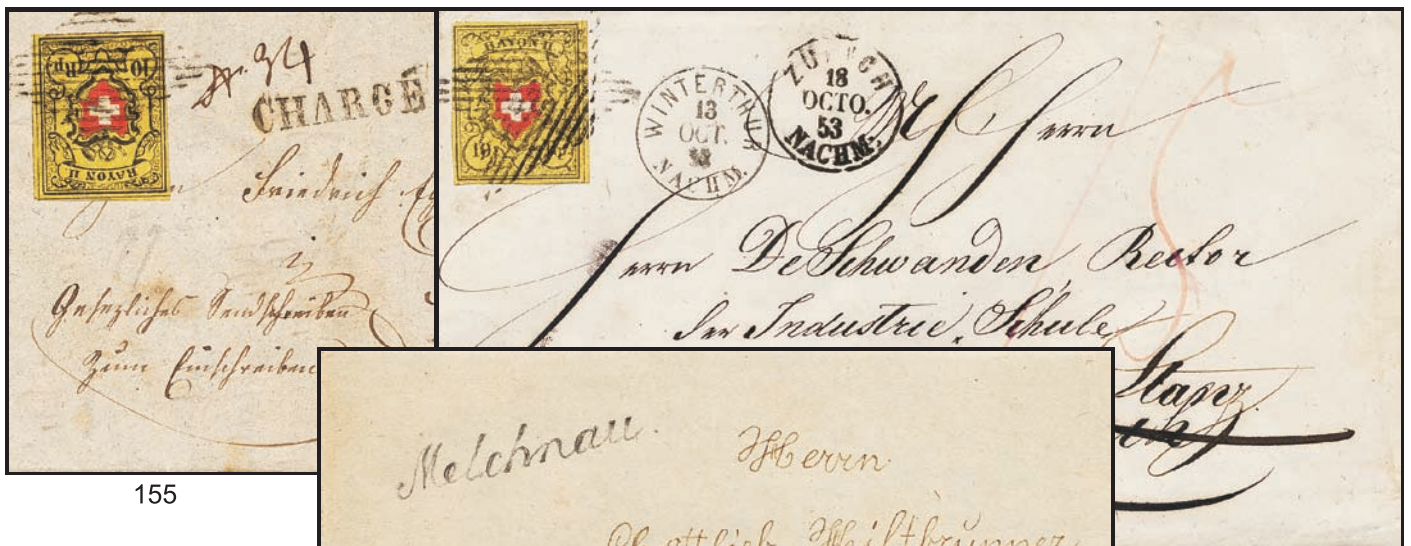 10 Rp.
RAYON II
N° 34
CHARGE
Friedrich
Gesetzliches Sendschreiben
Zum Einschreiben
155
RAYON II
10
WINTERTHUR
13
OCT.
53
NACHM.
ZÜRICH
18
OCTO.
53
NACHM.
Herrn
Herrn De Schwanden Rector
der Industrie Schule
Stanz
Melchnau.
Herrn
Gottlieb